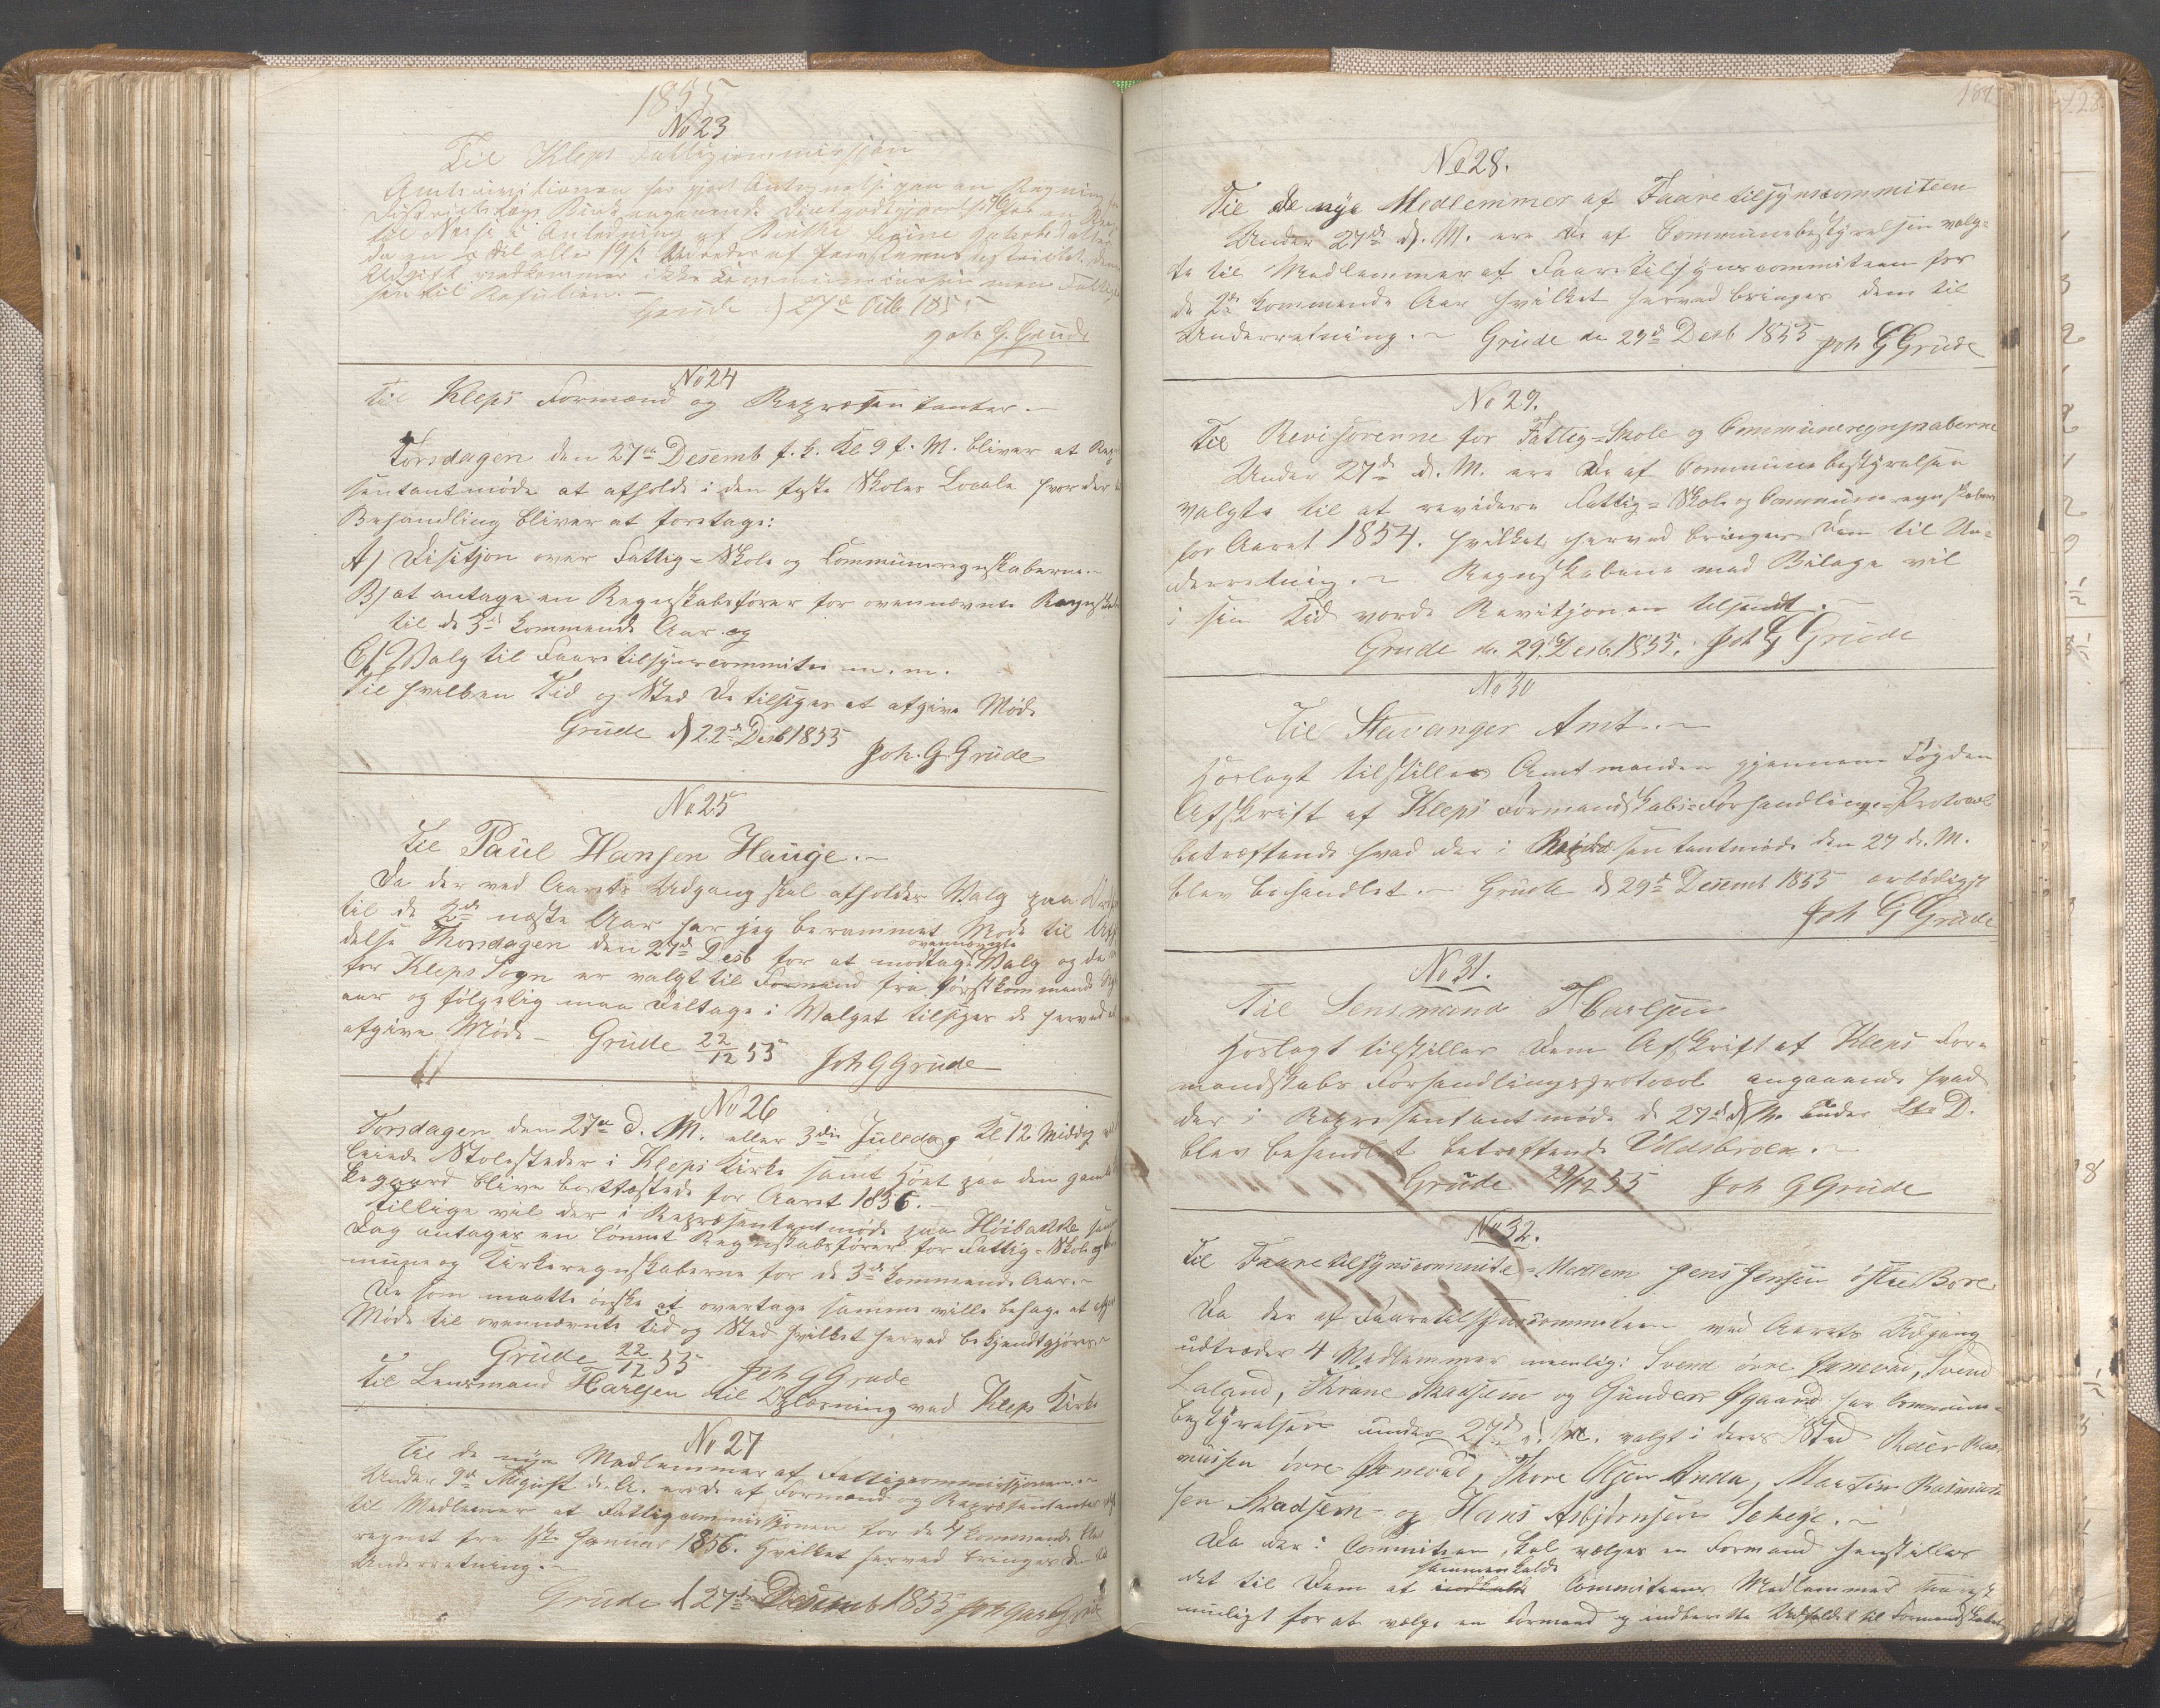 1855
No 23
Til Kleps Fattigcommissjon
Amtsrevisionen har gjort Antegnelse paa en Regning
til Næsse i Anledning af
Udgift vedkommer ikke Communecassen men Fattig
sen til Refusion. —
Grude d 27de Octb 1855
Joh. G. Grude
No 24
Til Kleps Formænd og Repræsentanter. —
Torsdagen den 27de Desemb f. k. Kl 9 f. M. bliver et Repræ
sentantmøde at afholde i den faste Skoles Locale hvor der til
Behandling bliver at foretage:
A) Disitsjon over Fattig- Skole og Communeregnskaberne. —
B) at antage en Regnskabsfører for ovennævnte Regnskaber
til de 3de kommende Aar og
C) Valg til Faaretilsynscommite m. m.
Til hvilken Tid og Sted De tilsiges at afgive Møde
Grude d 22de Desb 1855
Joh. G. Grude
No 25
Til Paul Hansen Hauge. —
Da der ved Aarets Udgang skal afholdes Valg paa
til de 2de næste Aar har jeg berammet Møde til
delse Thorsdagen den 27de Desb for at modtage ovennævnte Valg og da
for Kleps Sogn er valgt til Formand fra førstkommende
aar og følgelig maa deltage i Valget tilsiges de herved at
afgive Møde — Grude 22/12 55 Joh G Grude
No 26
Torsdagen den 27de d. M. eller 3die Juledag Kl 12 Middag
leiede Stolesteder i Kleps Kirke samt Høet paa den gamle
kegaard blive bortfæstede for Aaret 1856. —
Tillige vil der i Repræsentantmøde paa Høibakke samme
Dag antages en lønnet Regnskabsfører for Fattig- Skole og
mune og Kirkeregnskaberne for de 3de kommende Aar. —
De som maatte ønske at overtage samme ville behage at afgive
Møde til ovennævnte tid og Sted hvilket herved bekjendtgjøres. —
Grude 22/12 55 Joh G Grude
Til Lensmand Harlsen til Oplæsning ved Kleps Kirke
No 27
Til de nye Medlemmer af Fattigcommissjonen. —
Under 9de August d. A. er de af Formænd og Repræsentanter
til Medlemer af Fattigcommissjonen for de 4 kommende Aar
regnet fra 1ste Januar 1856. Hvilket herved bringes Dem til
Underretning. —
Grude d 27de Desemb 1855 Joh Gab Grude
181
No 28.
Til de nye Medlemmer af Faaretilsynscommiteen
Under 27de d. M. ere De af Communebestyrelsen valg-
te til Medlemmer af Faaretilsynscommiteen for
de 2de kommende Aar hvilket herved bringes dem til
Underretning. — Grude de 29de Desb 1855 Joh G Grude
No 29.
Til Revisorerne for Fattig- Skole og Communeregnskaberne
Under 27de d. M. ere De af Communebestyrelsen
valgte til at revidere Fattig- Skole og Communeregnskaberne
for Aaret 1854. hvilket herved bringes Dem til Un-
derretning. — Regnskabene med Bilage vil
i sin Tid vorde Revitsjonen tilsendt. —
Grude de 29de Desb 1855. Joh G Grude
No 30
Til Stavanger Amt. —
Hoslagt tilstilles Amtmanden gjennem Fogden
Afskrift af Kleps Formandskabs-Forhandlings-Protocol
betræffende hvad der i Repræsentantmøde den 27 d. M.
blev behandlet. — Grude d 29de Desemb 1855 ærbødigst
Joh G Grude
No 31.
Til Lensmand T Harlsen
Hoslagt tilstilles Dem Afskrift af Kleps For-
mandskabs Forhandlingsprotocol angaaende hvad
der i Repræsentantmøde d 27de d M. under Ltr D.
blev behandlet betræffende Voldsbroen. —
Grude 29/12 55 Joh G Grude
No 32.
Til Faaretilsynscommite-Medlem Jens Jensen østre Bore
Da der af Faaretilsynscommiteen ved Aarets Udgang
udtræder 4 Medlemmer nemlig: Svend øvre Jemvad, Svend
Laland, Thrane Skadsem og Gunder Øgaard har Commune-
bestyrelsen under 27de d. M. valgt i deres Sted Roer Ras-
mussen øvre Jemvad, Thore Olsen Anda, Martin Rasmus-
sen Skadsem og Hans Asbjørnsen Seheye. —
Da der i Commiteen skal vælges en Formand henstilles
det til Dem at indkalde sammenkalde Commiteens Medlemmer snarest
muligt for at vælge en Formand og indberette Udfaldet til Formandskabet